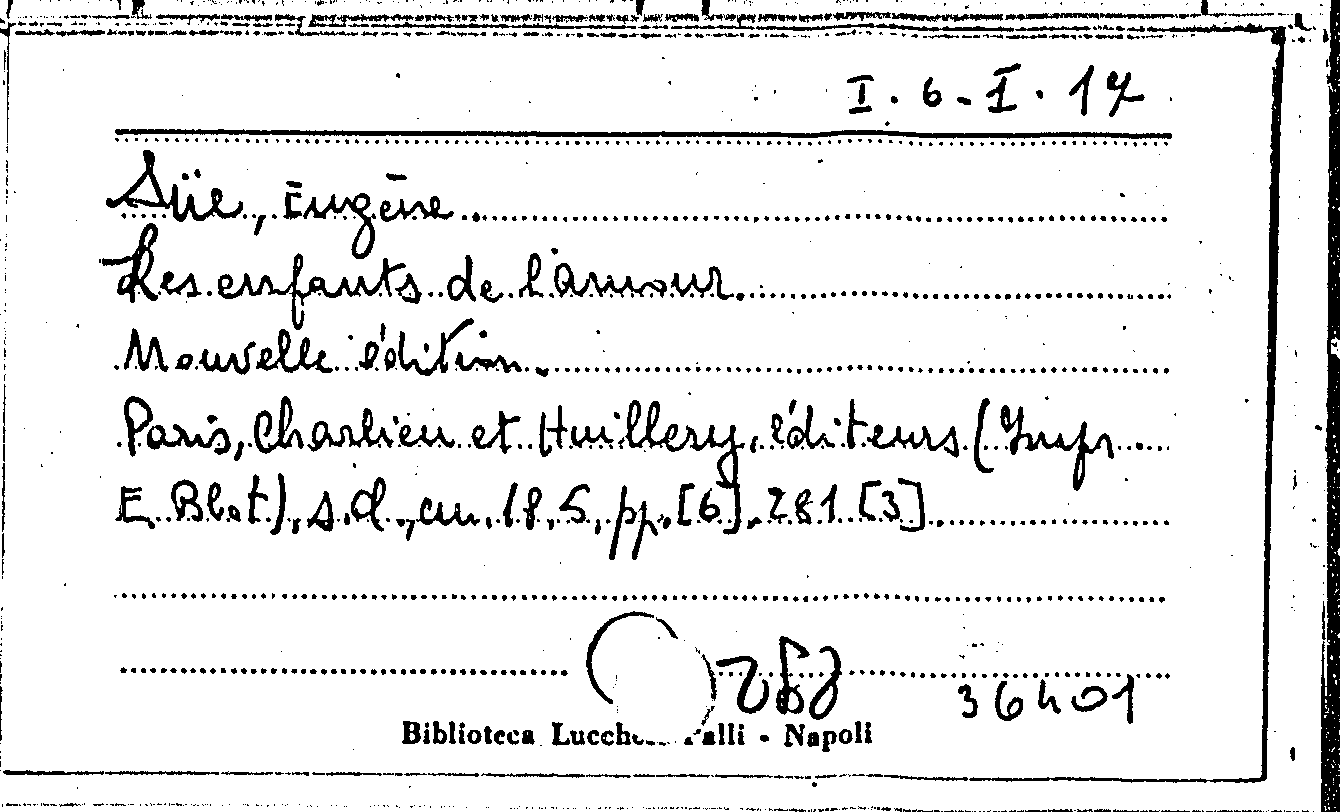 I. 6. I. 17
Süe, Eugène.
Les enfants de l'amour.
Nouvelle édition.
Paris, Charlieu et Huillery, éditeurs (Impr
E. Blot), s.d., cm. 18,5, pp. [6], 281 [3].
36401
Biblioteca Lucch... Palli - Napoli